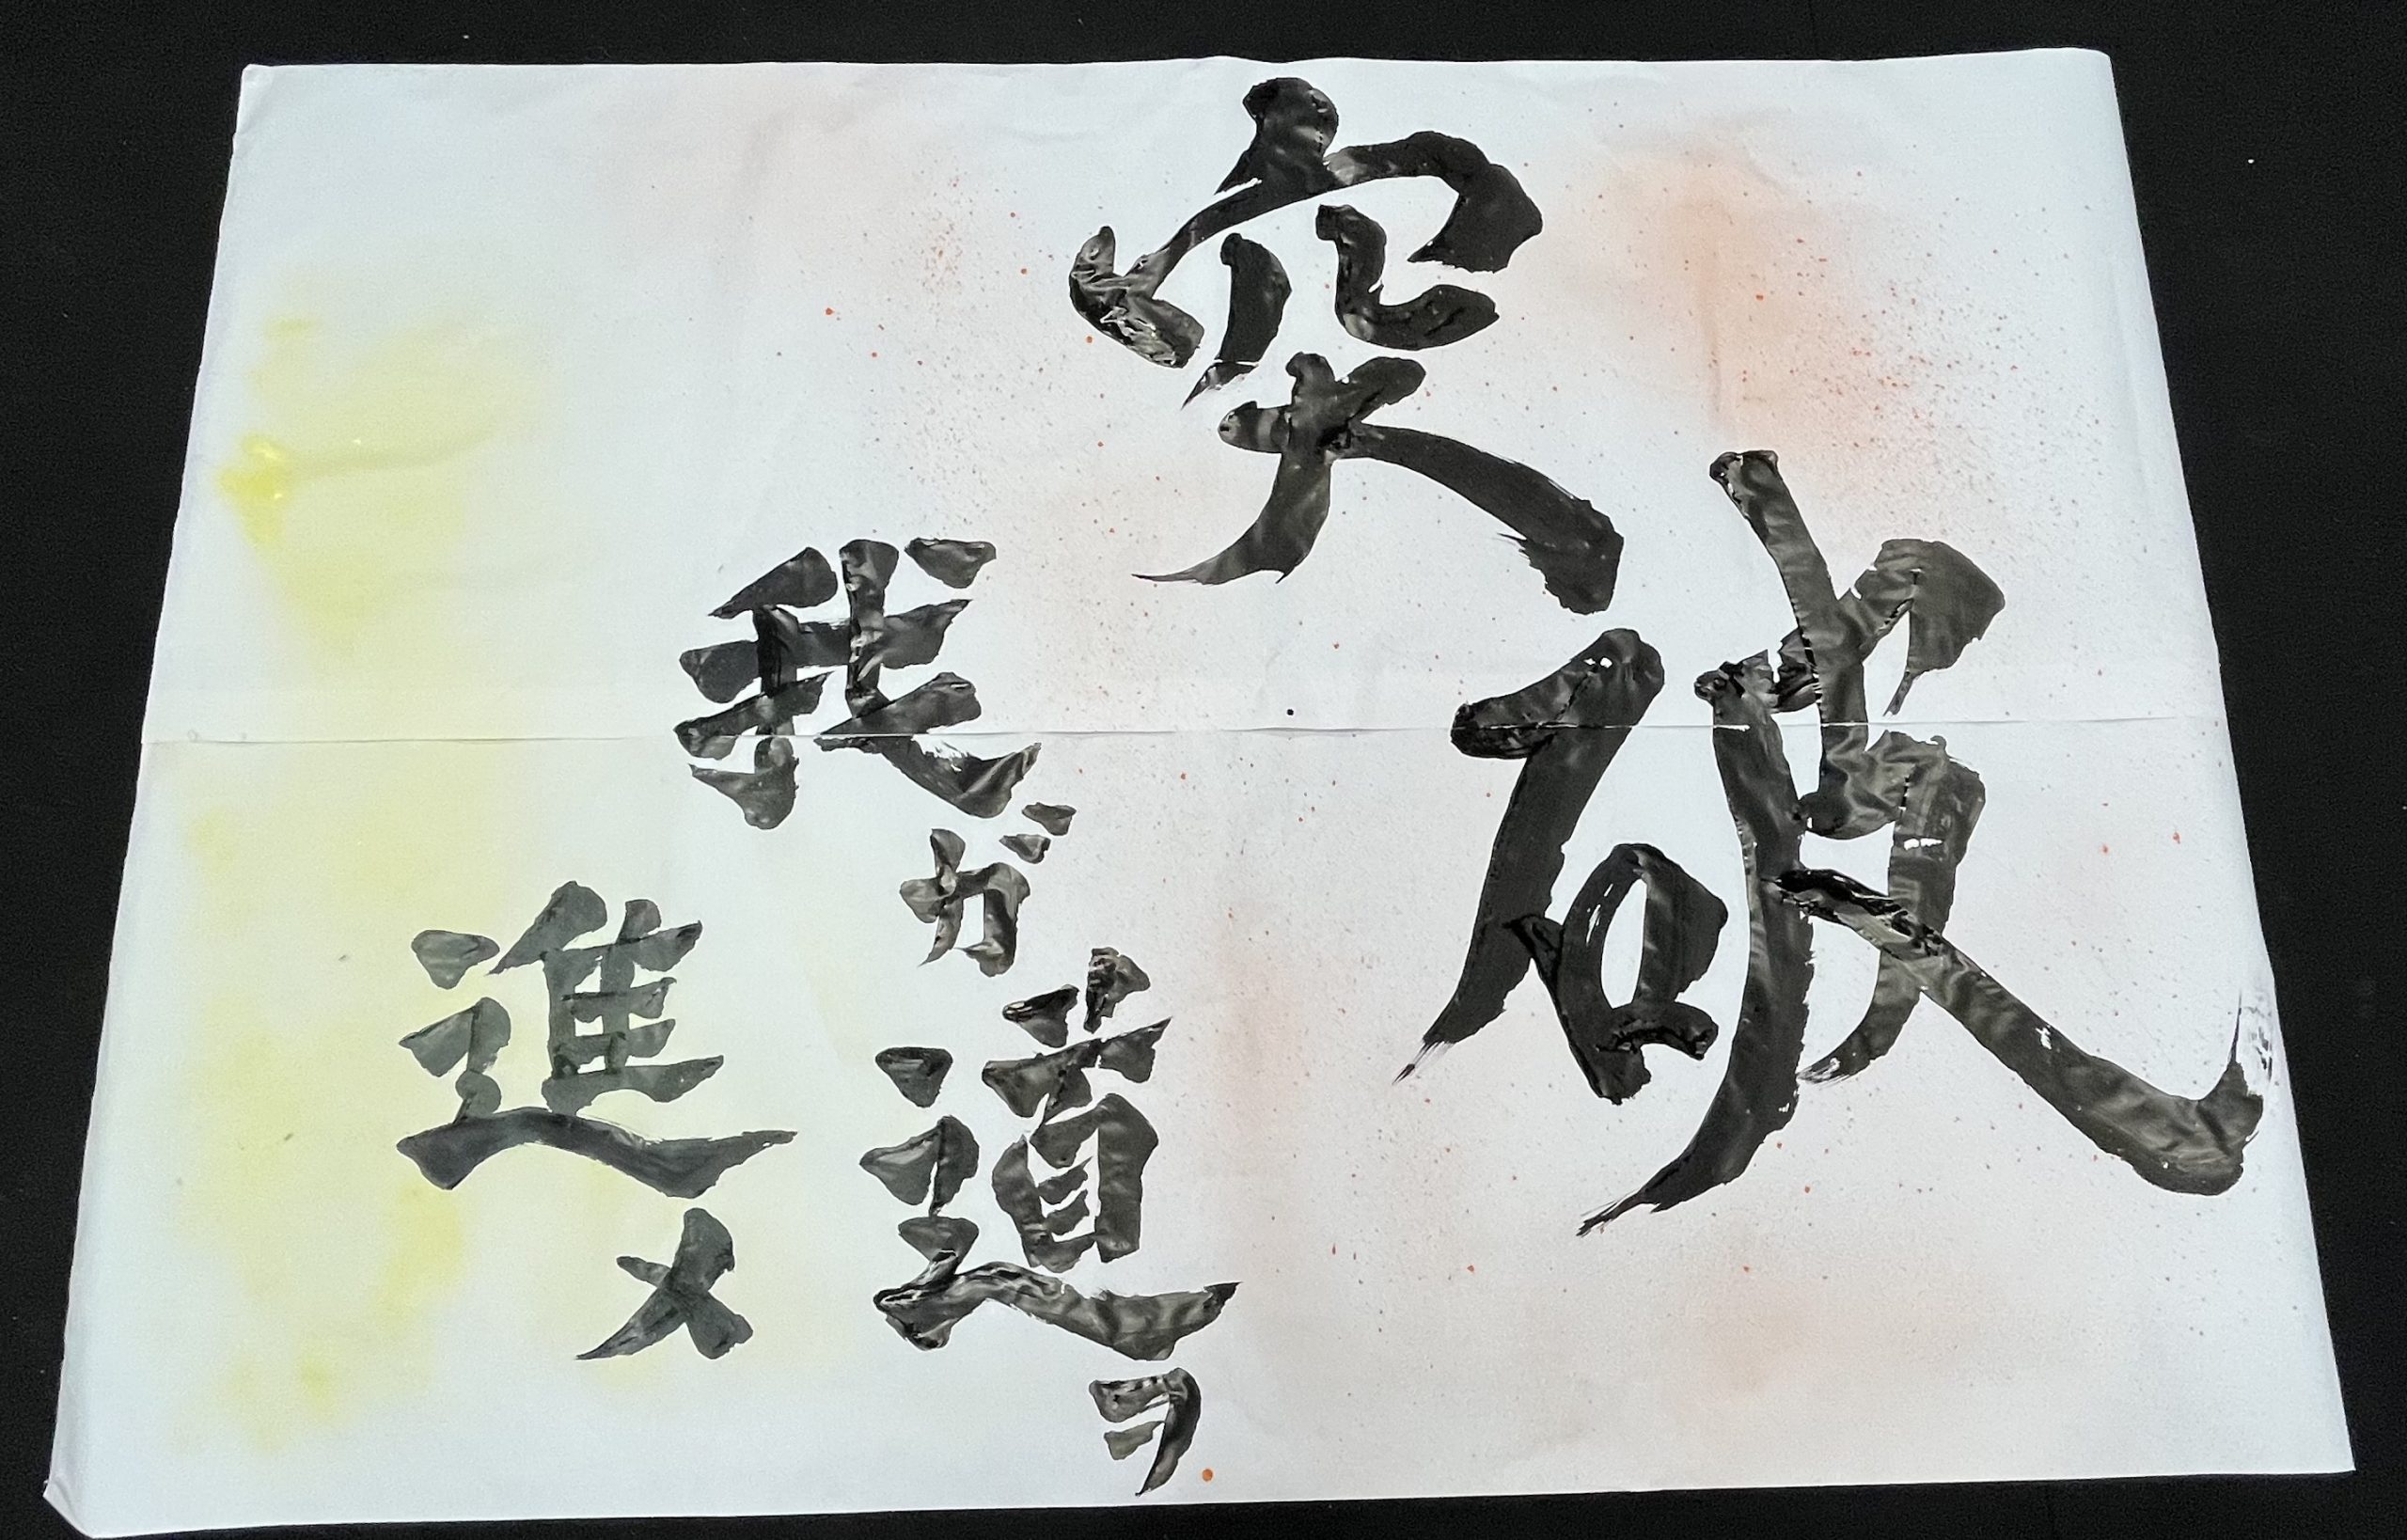 突破
我ガ道ヲ
進メ